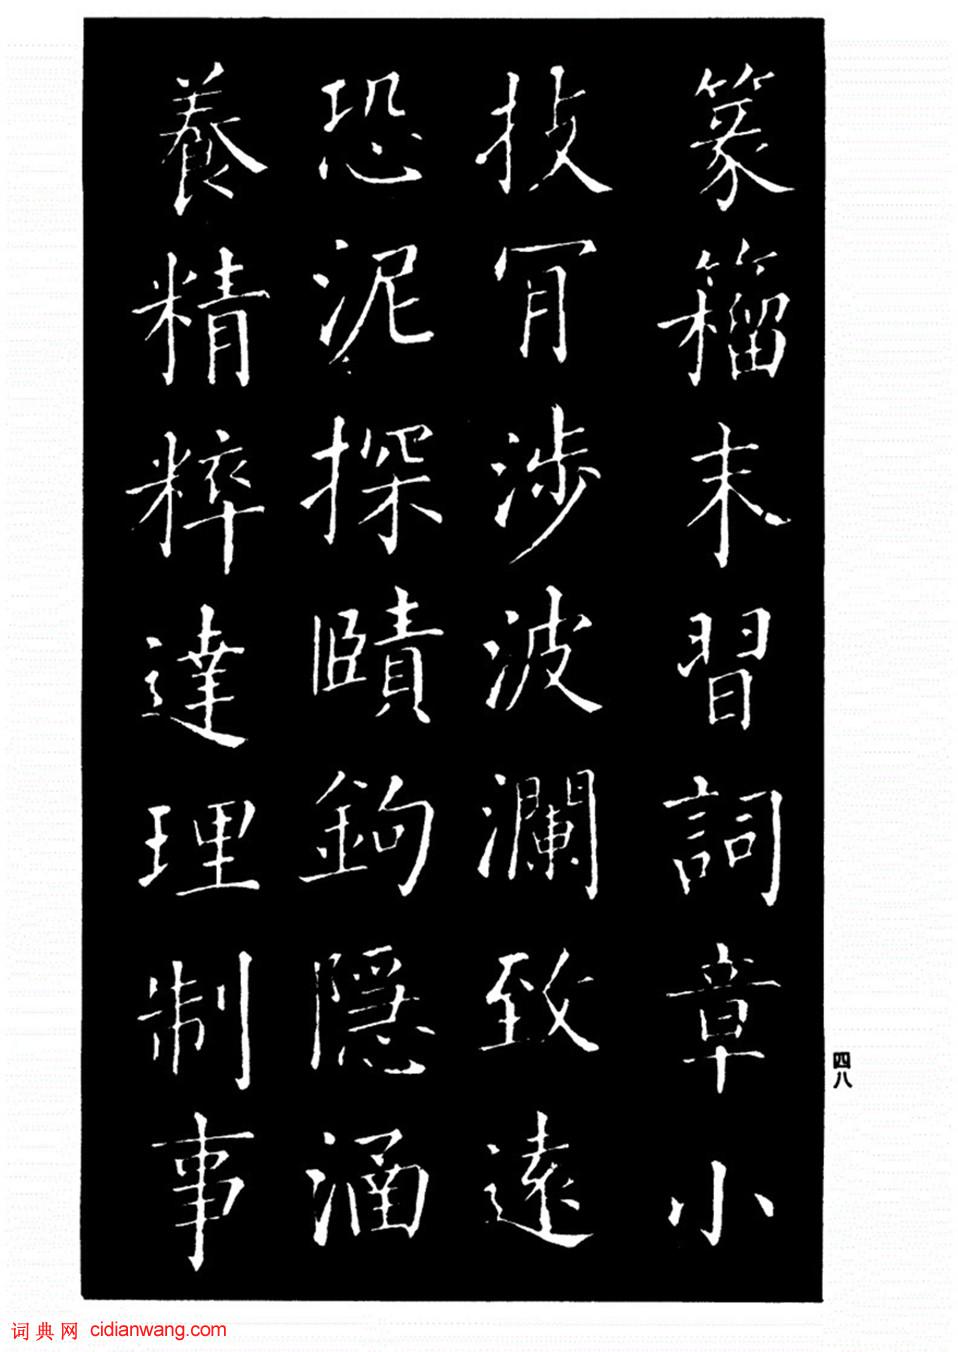 篆籀末習詞章小
技冐涉波瀾致遠
恐泥探賾鉤隱涵
養精粹達理制事
四八
词典网 cidianwang.com